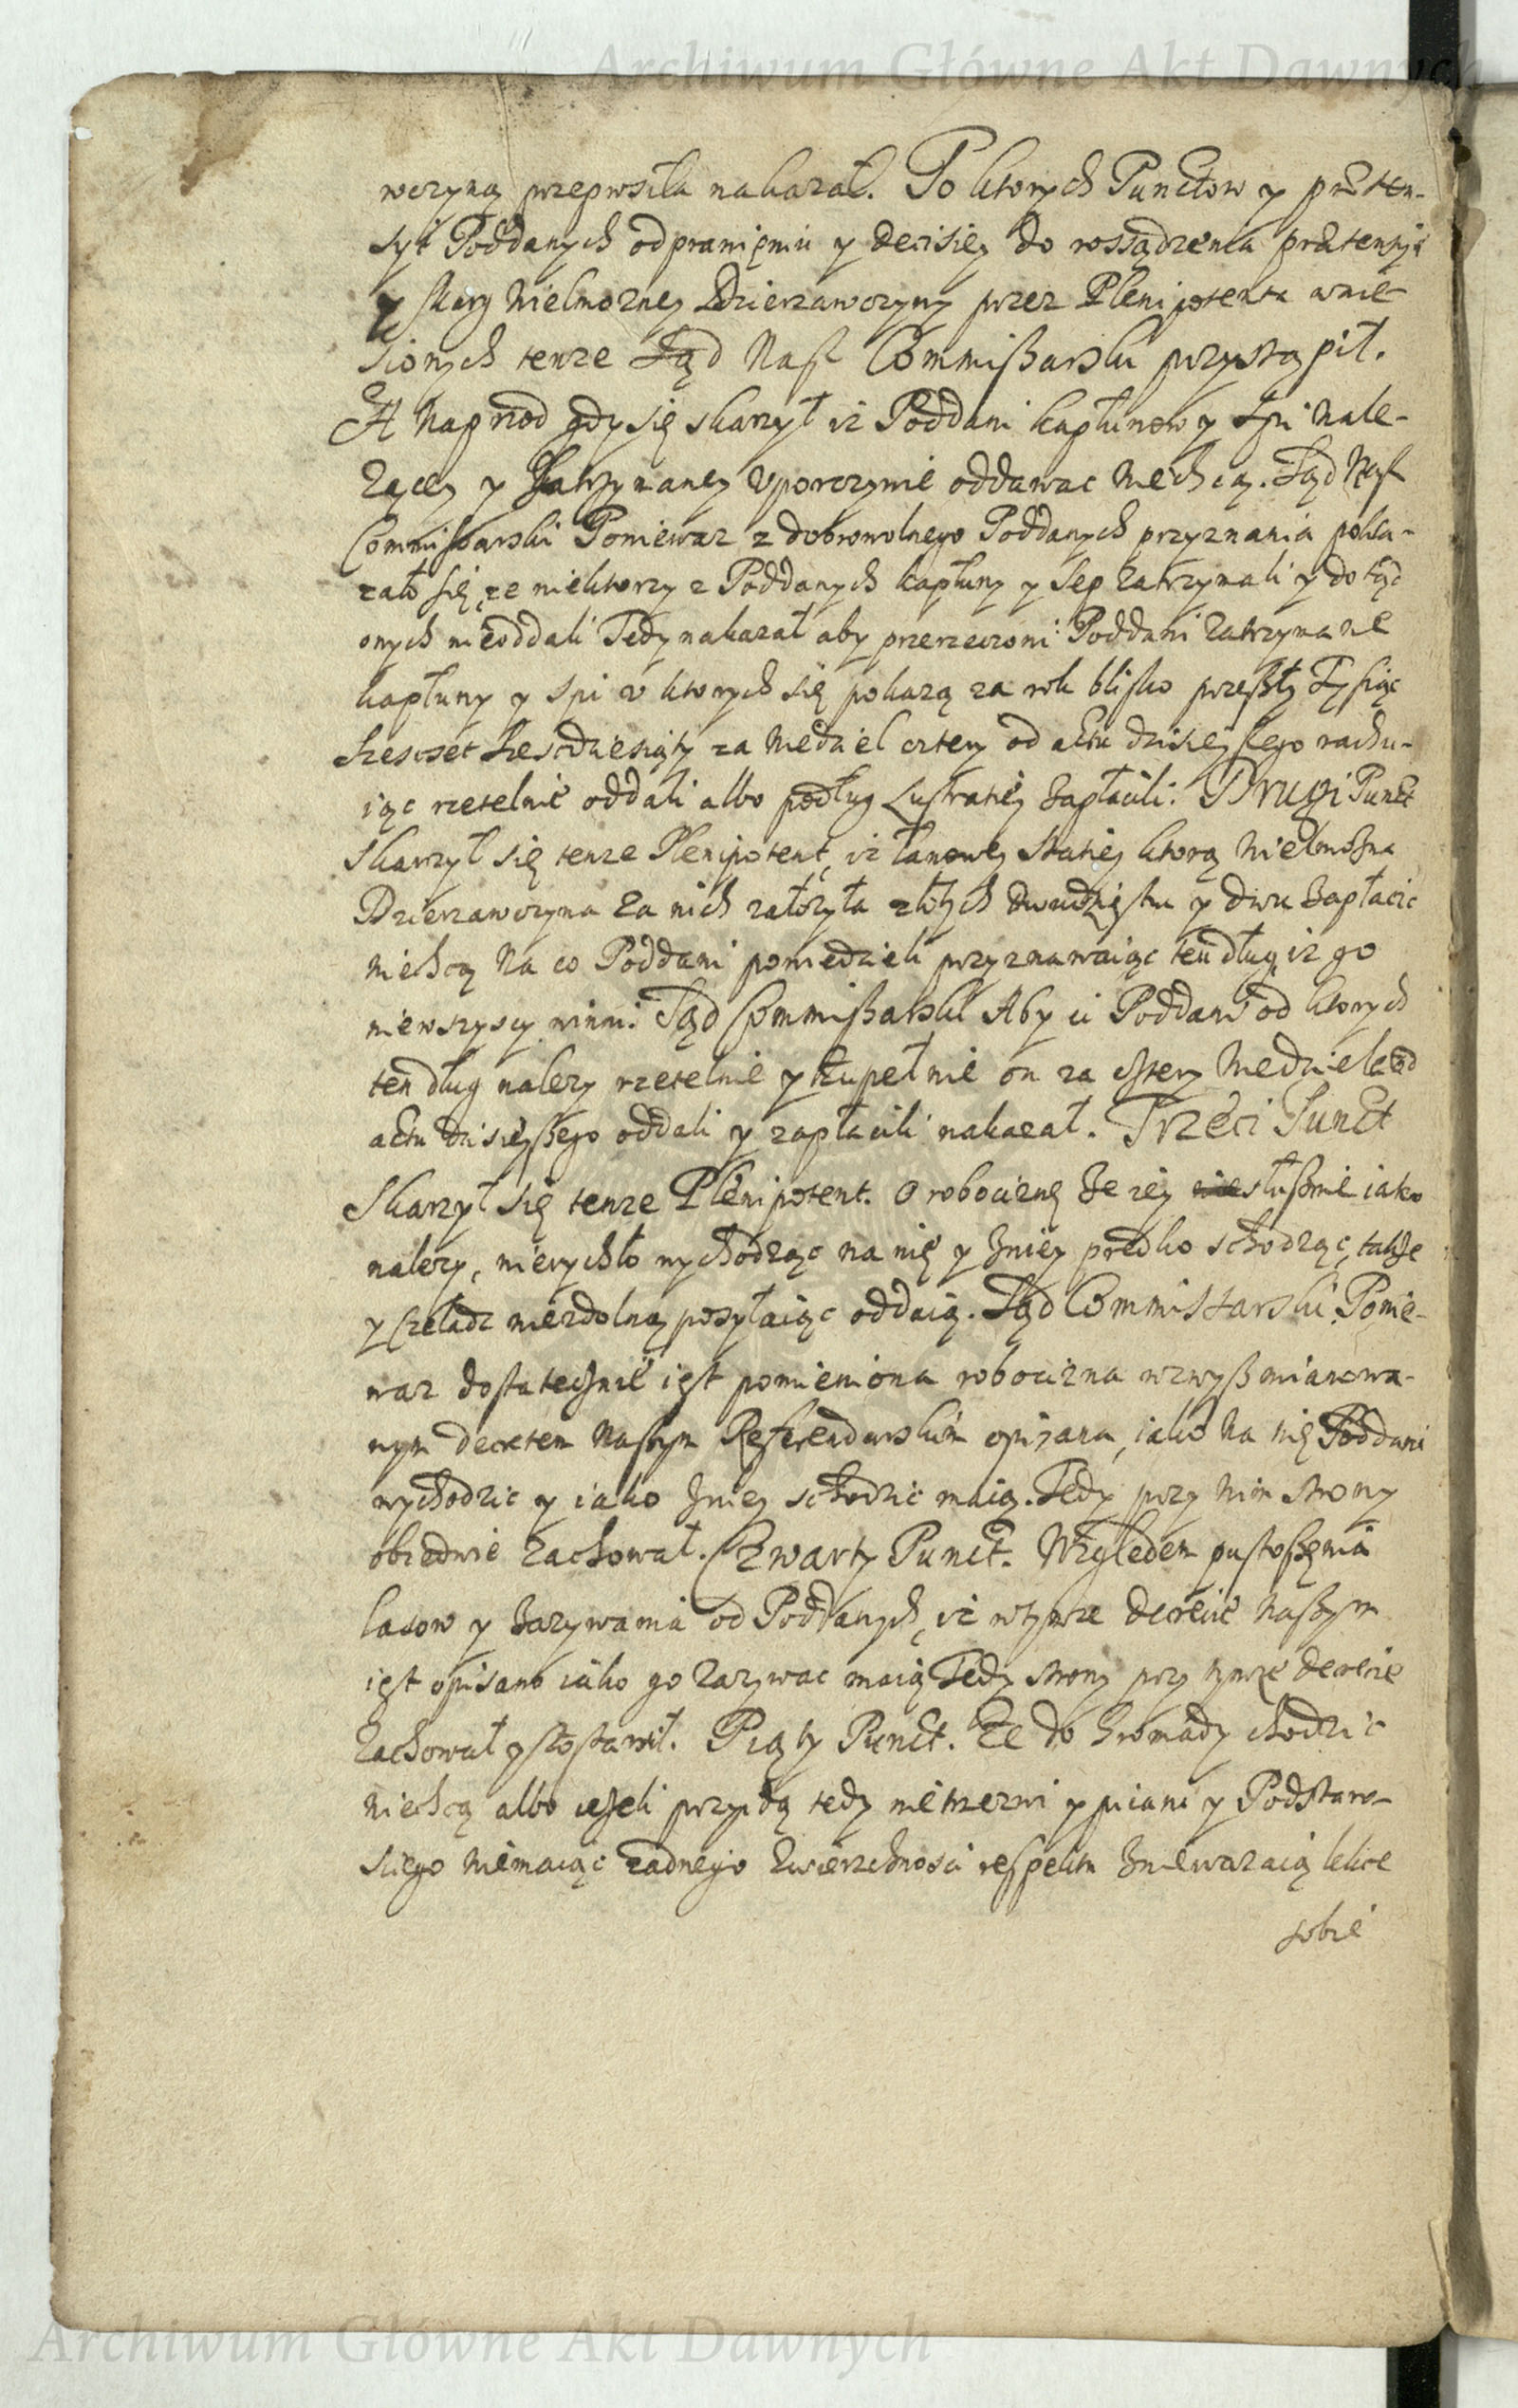 Archiwum Główne Akt Dawnych
wczyną przeprosiła nakazał. Po ktorych Punctow y præten-
syi Poddanych odprawięniu y decisiey do rossądzenia prætensyi
y skarg Wielmozney Dzierzawczyny przez Plenipotenta wnie-
sionych tenze Sąd Nasz Commißarski przystąpił.
A naprzod gdy się skarzył iz Poddani kapłunow y Spi nale-
zącey y Zatrzymaney Uporczywie oddawac niechcą. Sąd Nasz
Commißarski Poniewaz z dobrowolnego Poddanych przyznania poka-
zało się, ze niektorzy z Poddanych kapłuny y Sep zatrzymali y dotąd
onych nieoddali Tedy nakazał aby przerzeczoni Poddani zatrzymane
kapłuny y Spi u ktorych się pokazą za rok blisko przeszły Tysiąc
szescset szescdziesiąty za niedziel cztery od aktu dzisieyszego rachu-
iąc rzetelnie oddali albo podług Lustratiey Zapłacili. Drugi Punct
Skarzył się tenze Plenipotent, iz łanowey Statiey ktorą Wielmożna
Dzierzawczyna za nich załozyła złotych dwudziestu y dwu Zapłacic
niechcą Na co Poddani powiedzieli przyznawaiąc ten dług, iz go
niewszyscy winni. Sąd Commißarski Aby ci Poddani od ktorych
ten dług nalezy rzetelnie y zupełnie on za cztery Niedziele od
aktu dzisieyßego oddali y zapłacili nakazał. Trzeci Punct
Skarzył się tenze Plenipotent. O robociznę Ze iey niesłußnie iako
nalezy, nierychło wychodząc na nię y Zniey prędko schodząc, takze
y Czeladz niezdolną posyłaiąc oddaią. Sąd Commissarski. Ponie-
waz dostatecznie iest pomieniona robocizna wzwyß mianowa-
nym decretem Naszym Referendarskim opisana, iako na nię Poddani
wychodzic y iako Zniey schodzic maią. Tedy przy nim strony
obiedwie zachował. Czwarty Punct. Względem pustoszęnia
lasow y Zazywania od Poddanych, iz wtymze decrecie Naszym
iest opisano iako go Zazywac maią Tedy strony przy tymze decrecie
zachował y zostawił. Piąty Punct. Ze do Gromady chodzic
niechcą albo iezeli przyidą tedy nietrzezwi y piiani y Podstaro-
sciego niemaiąc zadnego Zwierzchnosci respektu Zniewazaią lekce
sobie
Archiwum Główne Akt Dawnych